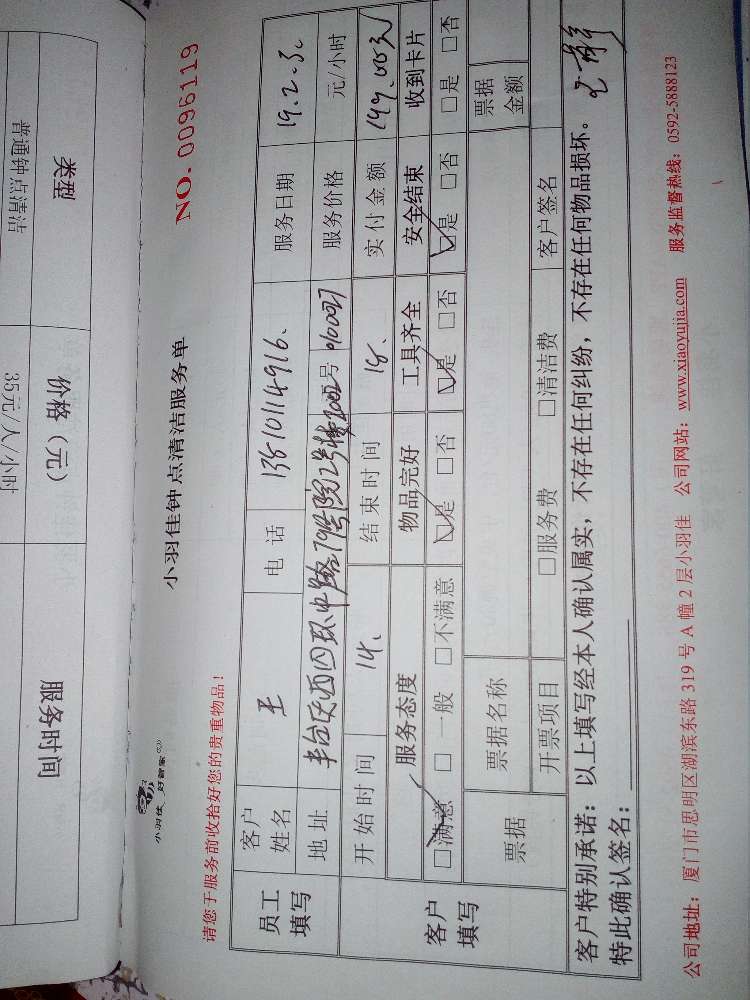 小羽佳_好管家
小羽佳钟点清洁服务单
NO. 0096119
请您于服务前收拾好您的贵重物品！
员工填写
客户姓名 王 电话 13810114916. 服务日期 19.2.3.
地址 丰台区西四环中路79号院2号楼2002 号 服务价格 元/小时
客户填写
开始时间 14. 结束时间 18. 实付金额 149.00元
服务态度 物品完好 工具齐全 安全结束 收到卡片
□满意 □一般 □不满意 □是 □否 □是 □否 □是 □否 □是 □否
票据 票据名称 票据金额
开票项目 □服务费 □清洁费 客户签名
客户特别承诺：以上填写经本人确认属实，不存在任何纠纷，不存在任何物品损坏。
特此确认签名：
公司地址：厦门市思明区湖滨东路 319 号 A 幢 2 层小羽佳 公司网站：www.xiaoyujia.com 服务监督热线：0592-5888123
类型 价格（元） 服务时间
普通钟点清洁 35元/人/小时